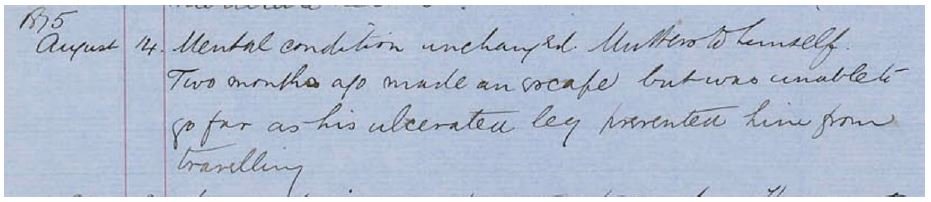 August 14. Mental condition unchanged. Mutters to himself.
Two months ago made an escape but was unable to
go far as his ulcerated leg prevented him from
travelling